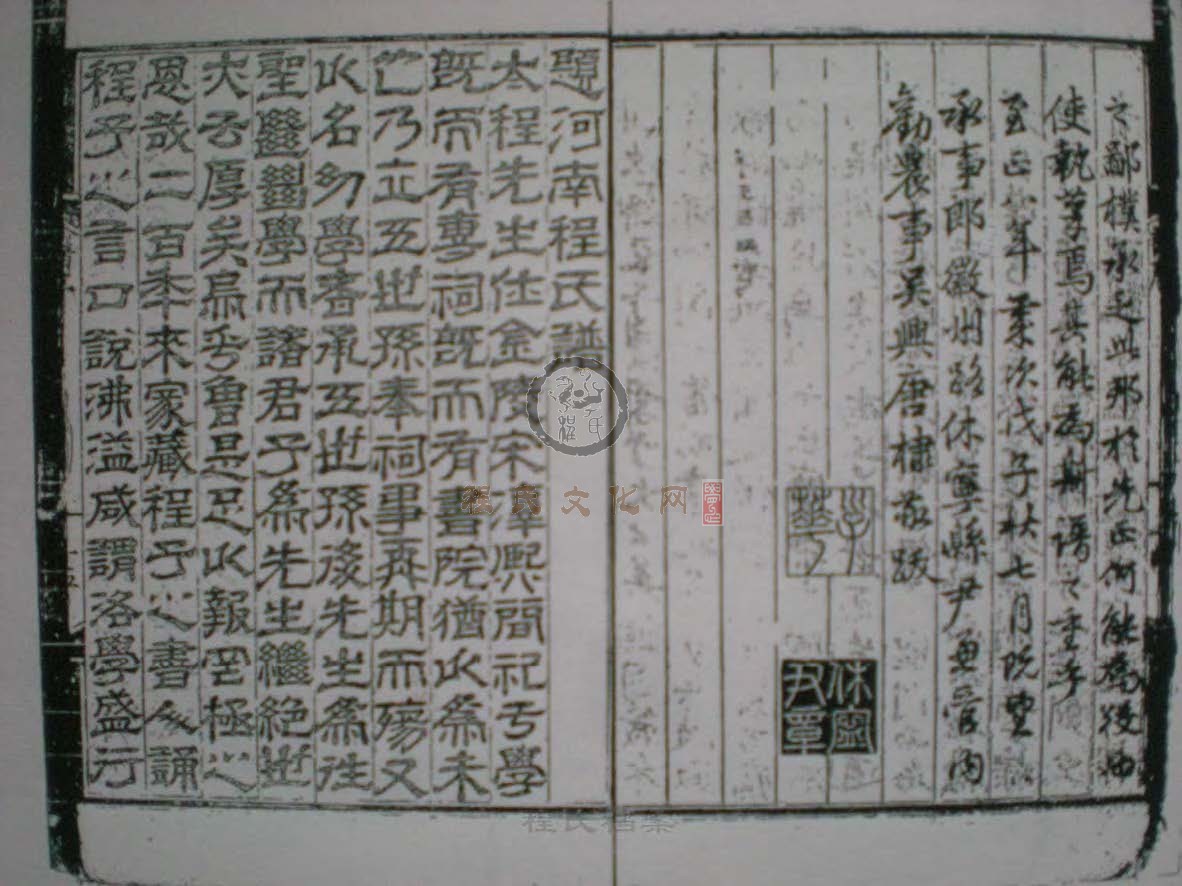 之鄙樸承乏此邦於先正何能為役而
使執筆焉其能為斯譜之重乎
至正年柔次戊子秋七月既望
承事郎徽州路休寧縣尹兼管內
勸農事吳興唐棣敬跋
子華
休寧尹章
題河南程氏譜
大程先生仕金陵宋淳熙間祀于學
既而有專祠既而有書院猶以為未
也乃立五世孫奉祠事再期而殤又
以名幼學者承五世孫後先生為往
聖繼學而諸君子為先生繼絕世
夫亦厚矣烏乎曾是足以報罔極之
恩哉二百年來家藏程子之書人誦
程子之言口說沸溢咸謂洛學盛行
程氏文化网
程氏档案